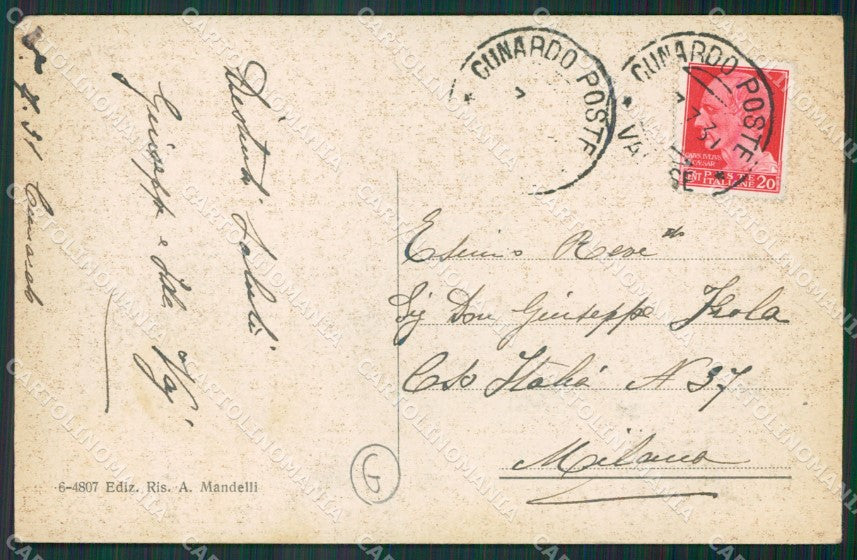 2. 7. 31 Cunardo
Distinti Saluti
Giuseppe e Ida
CUNARDO POSTE
CUNARDO POSTE
VARESE
CAIVS IVLIVS
CAESAR
CENT POSTE 20
ITALIANE
Esimio Rev.do
Sig Don Giuseppe Isola
Cso Italia N 37
Milano
6-4807 Ediz. Ris. A. Mandelli
CARTOLINOMANIA